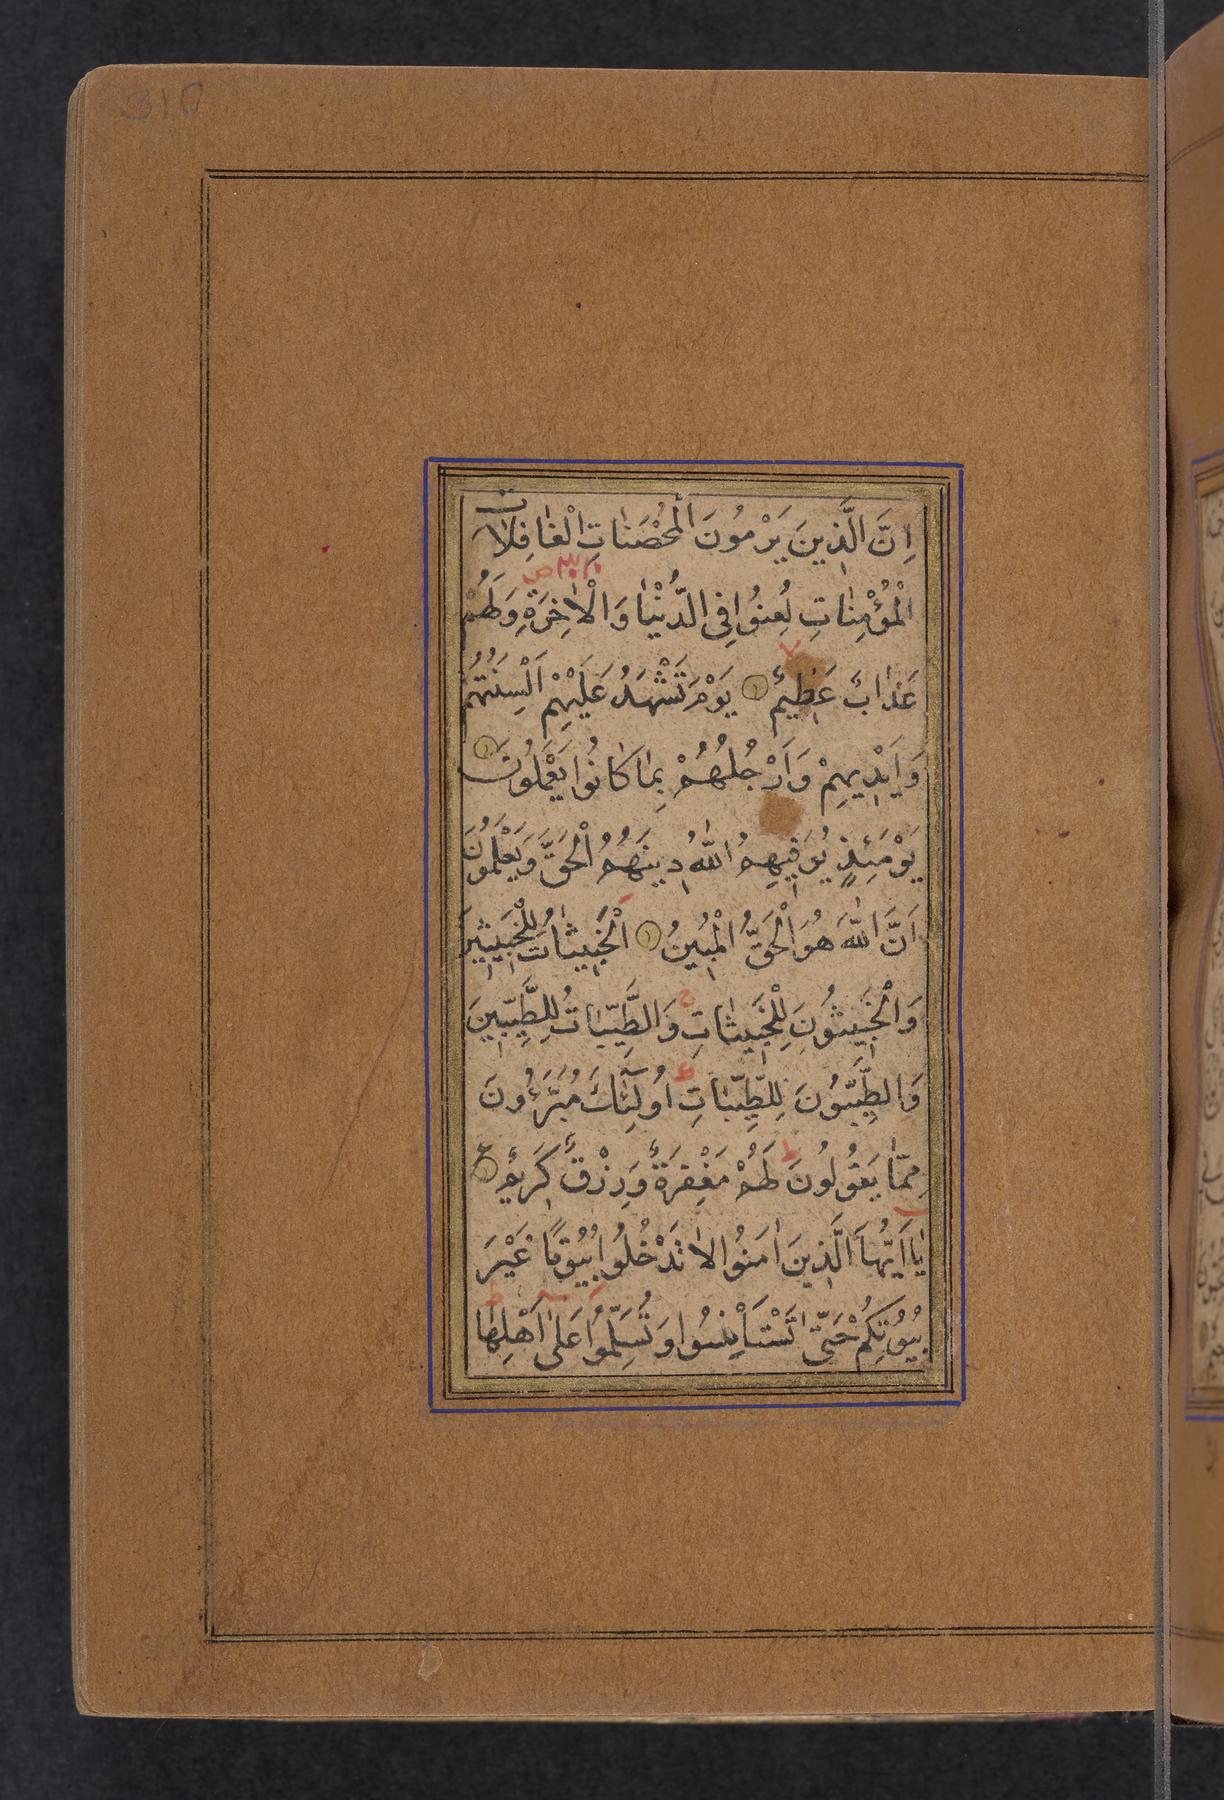 310
اِنَّ الَّذِينَ يَرْمُونَ الْمُحْصَنَاتِ الْغَافِلَاتِ
الْمُؤْمِنَاتِ لُعِنُوا فِي الدُّنْيَا وَالْاٰخِرَةِ وَلَهُمْ
عَذَابٌ عَظِيمٌ يَوْمَ تَشْهَدُ عَلَيْهِمْ اَلْسِنَتُهُمْ
وَاَيْدِيهِمْ وَاَرْجُلُهُمْ بِمَا كَانُوا يَعْمَلُونَ
يَوْمَئِذٍ يُوَفِّيهِمُ اللّٰهُ دِينَهُمُ الْحَقَّ وَيَعْلَمُونَ
اَنَّ اللّٰهَ هُوَ الْحَقُّ الْمُبِينُ اَلْخَبِيثَاتُ لِلْخَبِيثِينَ
وَالْخَبِيثُونَ لِلْخَبِيثَاتِ وَالطَّيِّبَاتُ لِلطَّيِّبِينَ
وَالطَّيِّبُونَ لِلطَّيِّبَاتِ اُولٰٓئِكَ مُبَرَّؤُنَ
مِمَّا يَقُولُونَ لَهُمْ مَغْفِرَةٌ وَرِزْقٌ كَرِيمٌ
يَا اَيُّهَا الَّذِينَ اٰمَنُوا لَا تَدْخُلُوا بُيُوتًا غَيْرَ
بُيُوتِكُمْ حَتّٰى تَسْتَاْنِسُوا وَتُسَلِّمُوا عَلٰى اَهْلِهَا